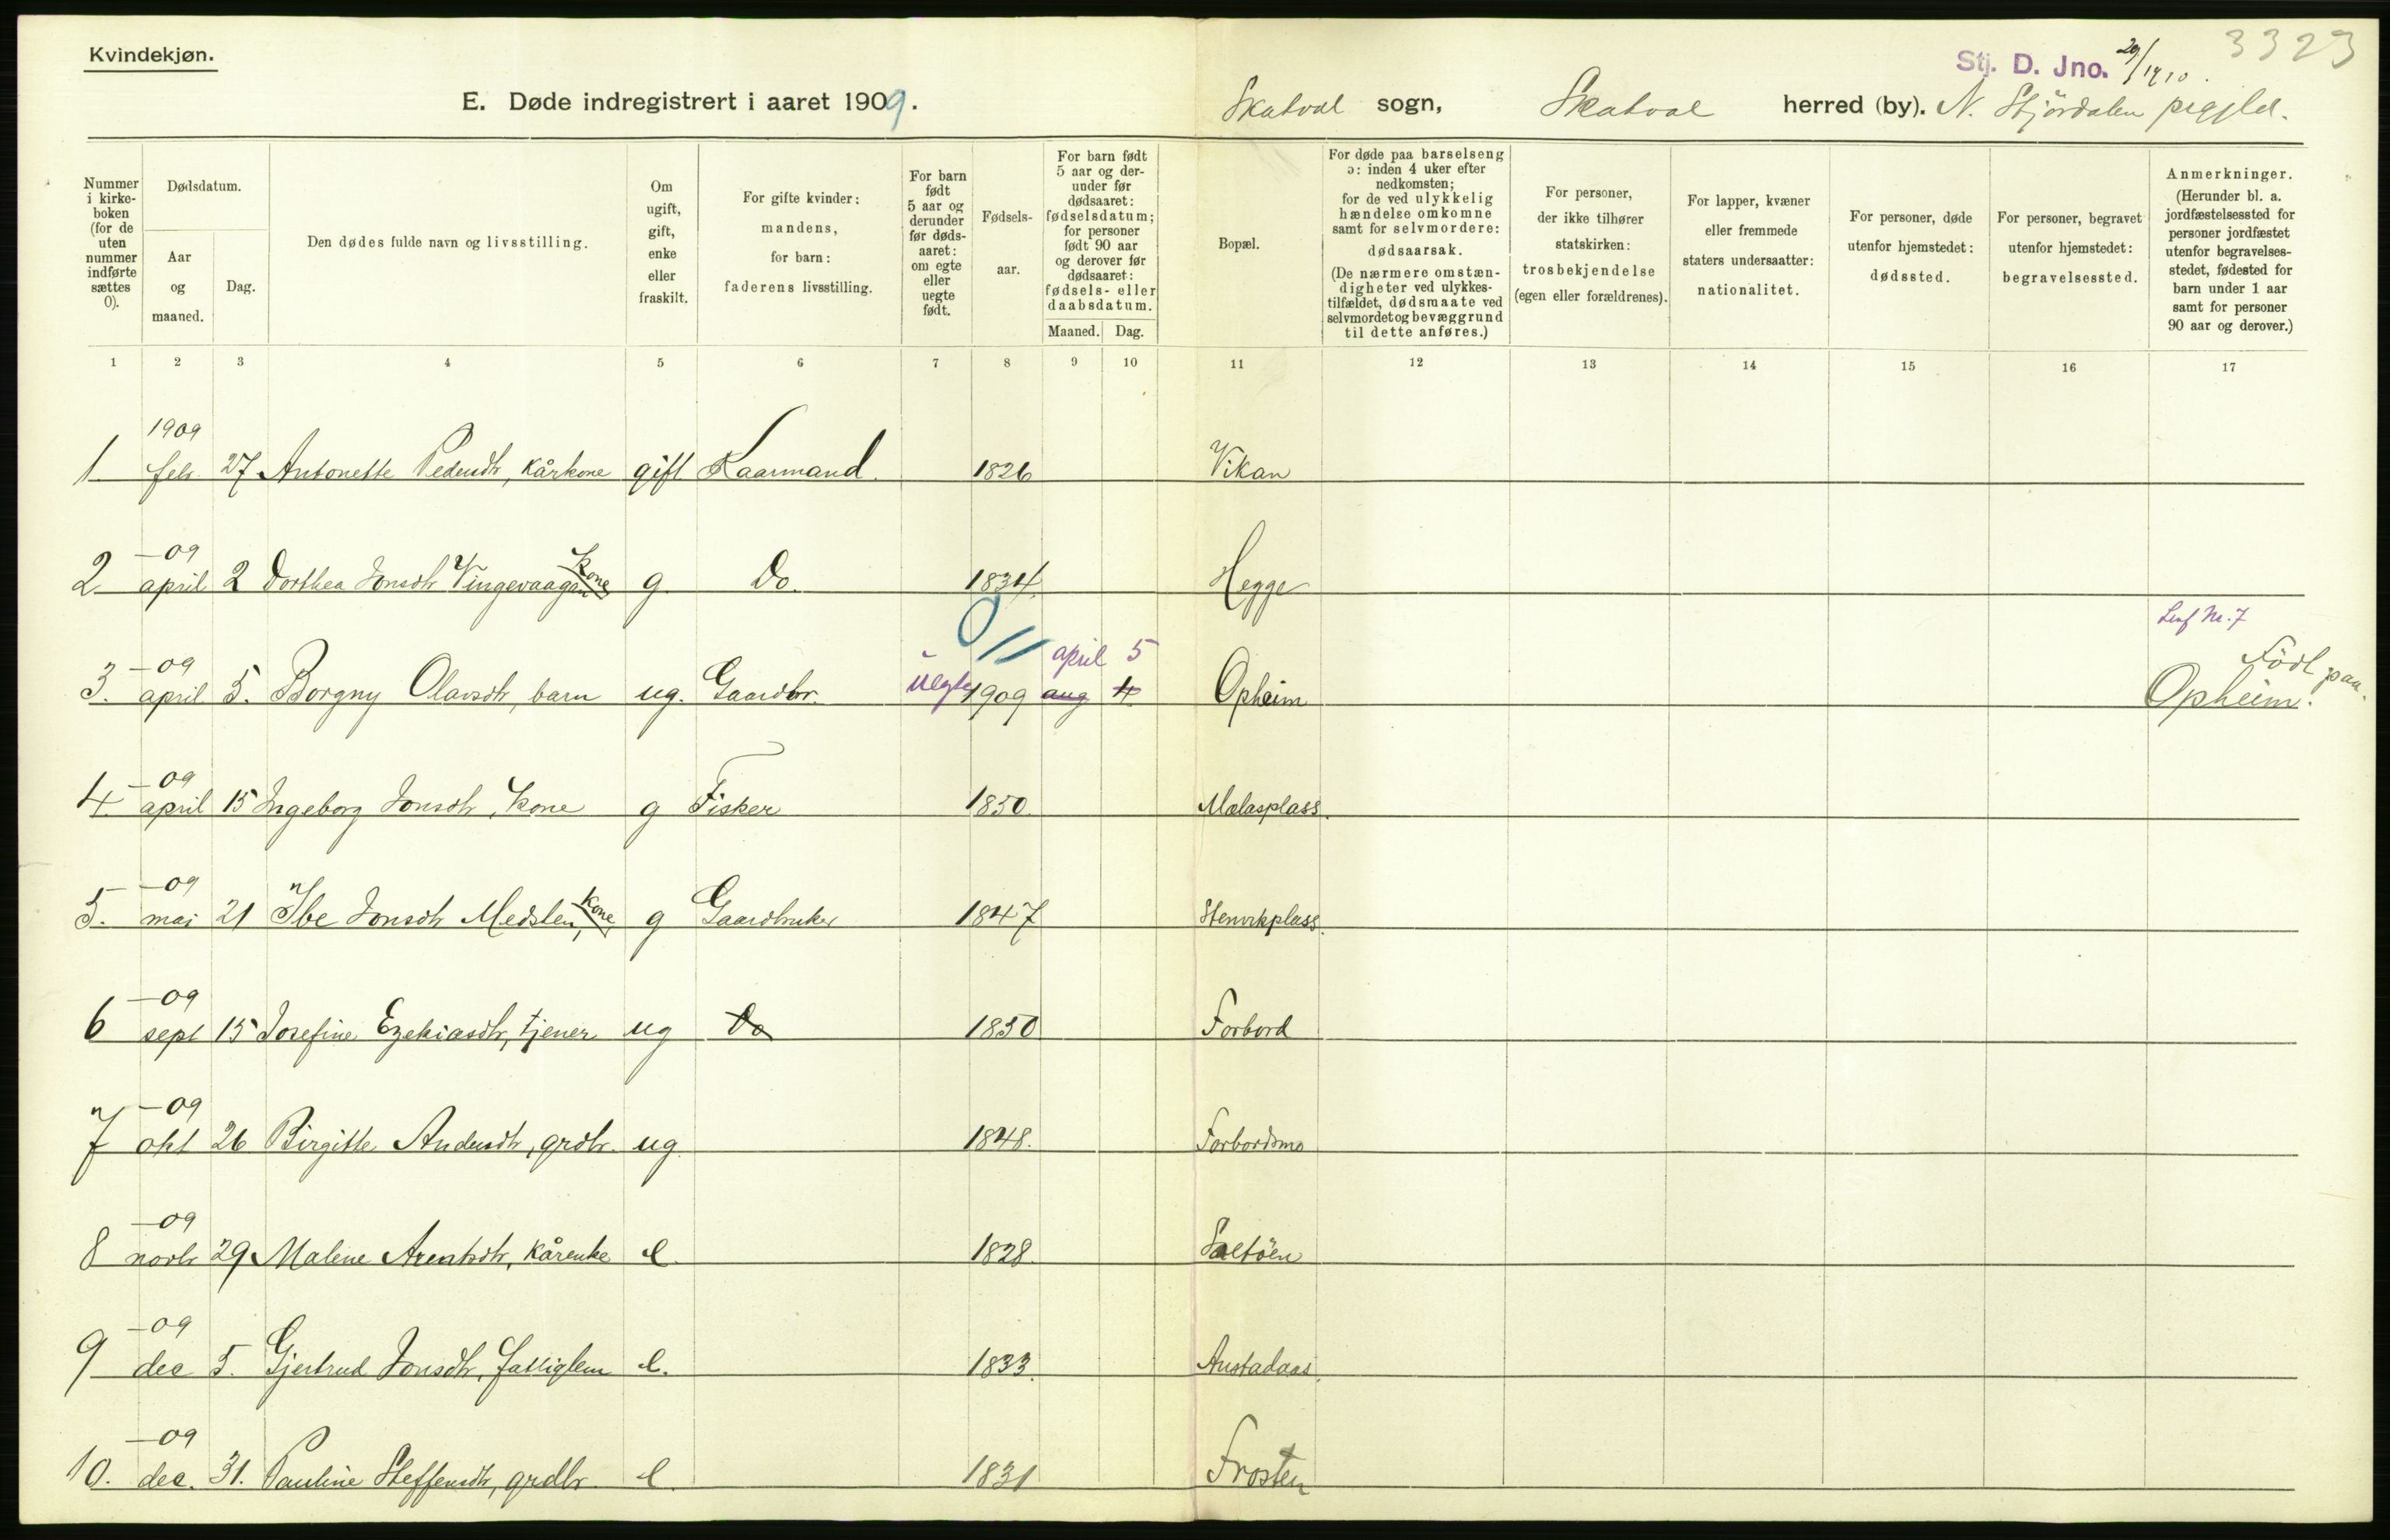 Kvindekjøn.
3323
Stj. D. Jno. 29/1910.
E. Døde indregistrert i aaret 1909.
Skatval sogn, Skatval herred (by). N. Stjördalen prgjld.
Nummer i kirkeboken (for de uten nummer indførte sættes 0).
Dødsdatum.
Aar og maaned.
Dag.
Den dødes fulde navn og livsstilling.
Om ugift, gift, enke eller fraskilt.
For gifte kvinder: mandens, for barn: faderens livsstilling.
For barn født 5 aar og derunder før dødsaaret: om egte eller uegte født.
Fødselsaar.
For barn født 5 aar og derunder før dødsaaret: fødselsdatum; for personer født 90 aar og derover før dødsaaret: fødsels- eller daabsdatum.
Maaned. Dag.
Bopæl.
For døde paa barselseng ɔ: inden 4 uker efter nedkomsten; for de ved ulykkelig hændelse omkomne samt for selvmordere: dødsaarsak. (De nærmere omstændigheter ved ulykkestilfældet, dødsmaate ved selvmordet og bevæggrund til dette anføres.)
For personer, der ikke tilhører statskirken: trosbekjendelse (egen eller forældrenes).
For lapper, kvæner eller fremmede staters undersaatter: nationalitet.
For personer, døde utenfor hjemstedet: dødssted.
For personer, begravet utenfor hjemstedet: begravelsessted.
Anmerkninger. (Herunder bl. a. jordfæstelsessted for personer jordfæstet utenfor begravelsesstedet, fødested for barn under 1 aar samt for personer 90 aar og derover.)
1 2 3 4 5 6 7 8 9 10 11 12 13 14 15 16 17
1909
1. febr. 27 Antonette Pedersdtr, kårkone gift Kaarmand. 1826 Vikan
—09
2 april 2 Dorthea Jonsdtr Vingevaagan kone g. Do. 1834. Hegge
0/1 april 5 Lev Nr. 7
—09
3. april 5. Borgny Olavsdtr, barn ug. Gaardbr. uegte 1909 aug 4. Opheim Födt paa Opheim.
—09
4. april 15 Ingeborg Jonsdtr, kone g Fisker 1850. Mælasplass.
—09
5. mai 21 Ibe Jonsdtr Medslen, kone g Gaardbruker 1847 Stenvikplass.
—09
6 sept 15 Josefine Ezekiasdtr, tjener ug Do 1850 Forbord
—09
7 okt 26 Birgitte Andersdtr, grdbr. ug. 1848. Forbordsmo
—09
8 novbr 29 Malene Arentsdtr, kårenke e. 1828. Saltöen
—09
9 dec 5. Gjertrud Jonsdtr, fattiglem e. 1833. Austadaas.
—09
10. dec. 31. Pauline Steffensdtr, grdbr. e. 1831 Frosten